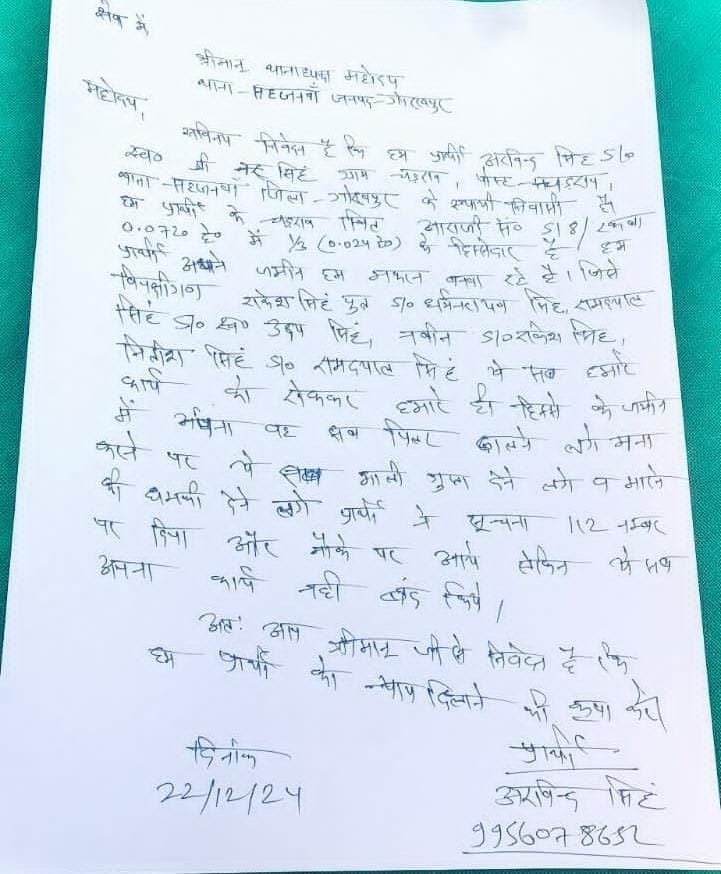 सेवा में
श्रीमान् थानाध्यक्ष महोदय
थाना - सहजनवाँ जनपद - गोरखपुर
महोदय,
सविनय निवेदन है कि हम प्रार्थी अरविन्द सिंह S/o
स्व० श्री सिंह ग्राम - पोस्ट -
थाना - सहजनवाँ जिला - गोरखपुर के स्थायी निवासी है।
हम प्रार्थी के स्थित आराजी सं० 518/ रकबा
0.0720 हे० में 1/3 (0.024 हे०) के हिस्सेदार है। हम
प्रार्थी अपने जमीन हम मकान बनवा रहे है। जिसे
विपक्षीगण राकेश सिंह पुत्र S/o सिंह, रामदयाल
सिंह S/o स्व० उदय सिंह, नवीन S/o राकेश सिंह,
नितीश सिंह S/o रामदयाल सिंह ये सब हमारे
कार्य को रोककर हमारे ही हिस्से के जमीन
में अपना वह सब पिलर डालने लगे मना
करने पर ये सब गाली गुप्ता देने लगे व मारने
की धमकी देने लगे प्रार्थी ने सूचना 112 नम्बर
पर दिया और मौके पर आये लेकिन ये सब
अपना कार्य नही बंद किये।
अतः आप श्रीमान् जी से निवेदन है कि
हम प्रार्थी को न्याय दिलाने की कृपा करें।
दिनांक
22/12/24
प्रार्थी
अरविन्द सिंह
9956078652